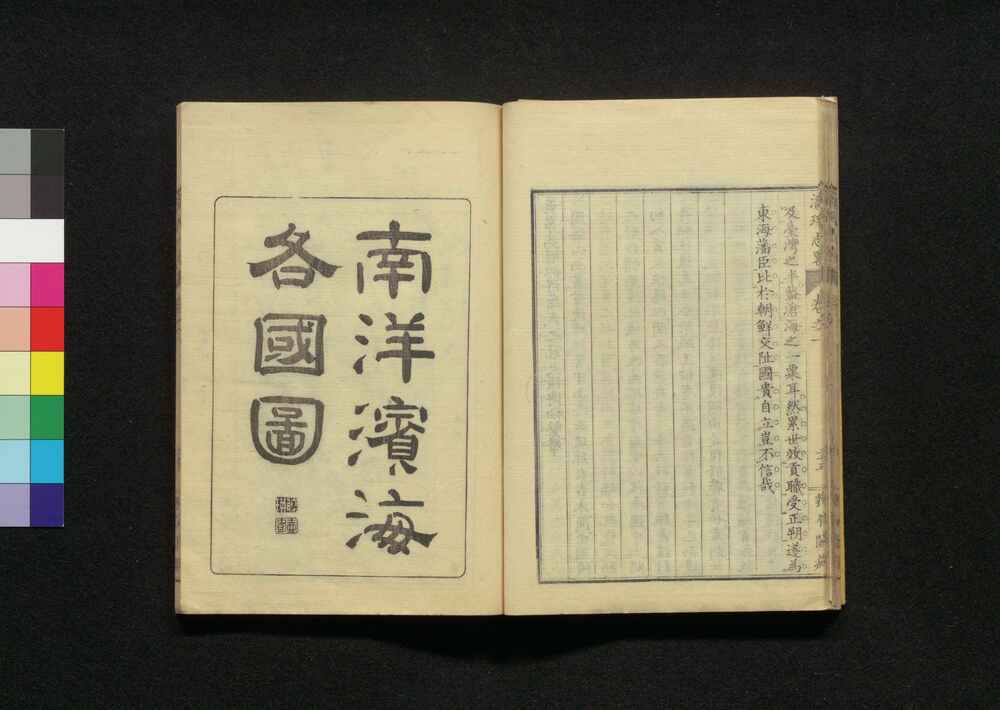 瀛環志畧
卷之一
及臺灣之半蓋滄海之一粟耳然累世效貢職受正朔遂為
東海藩臣比於朝鮮交阯國貴自立豈不信哉
南洋濱海
各國圖